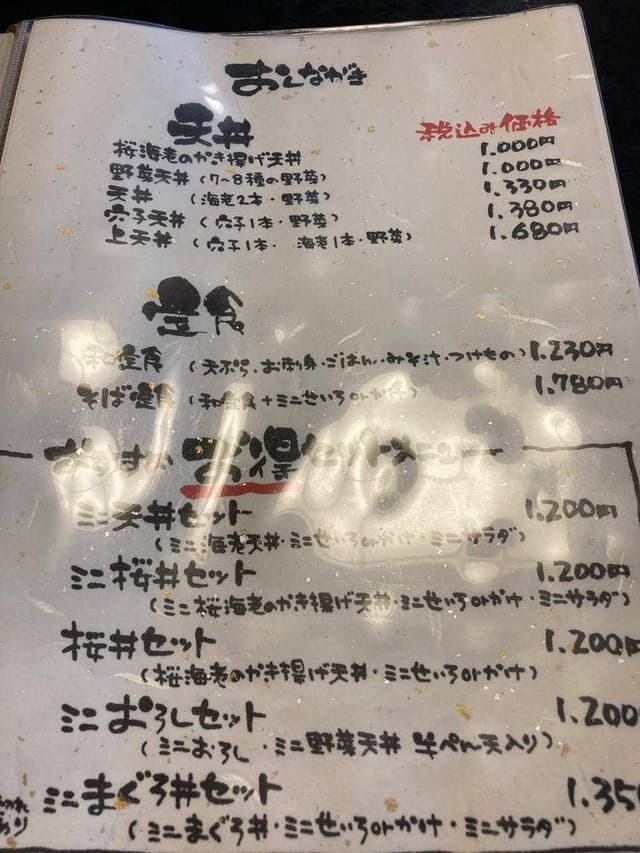 おしながき
天丼
税込み価格
桜海老のかき揚げ天丼 1.000円
野菜天丼 (7~8種の野菜) 1.000円
天丼 (海老2本・野菜) 1.330円
穴子天丼 (穴子1本・野菜) 1.380円
上天丼 (穴子1本・海老1本・野菜) 1.680円
定食
和定食 (天ぷら・お刺身・ごはん・みそ汁・つけもの) 1.230円
そば定食 (和定食+ミニせいろorかけ) 1.780円
おすすめ お得セットメニュー
ミニ天丼セット 1.200円
(ミニ海老天丼・ミニせいろorかけ・ミニサラダ)
ミニ桜丼セット 1.200円
(ミニ桜海老のかき揚げ天丼・ミニせいろorかけ・ミニサラダ)
桜丼セット 1.200円
(桜海老のかき揚げ天丼・ミニせいろorかけ)
ミニおろしセット 1.200
(ミニおろし・ミニ野菜天丼 半ぺん天入り)
ミニまぐろ丼セット 1.35
(ミニまぐろ丼・ミニせいろorかけ・ミニサラダ)